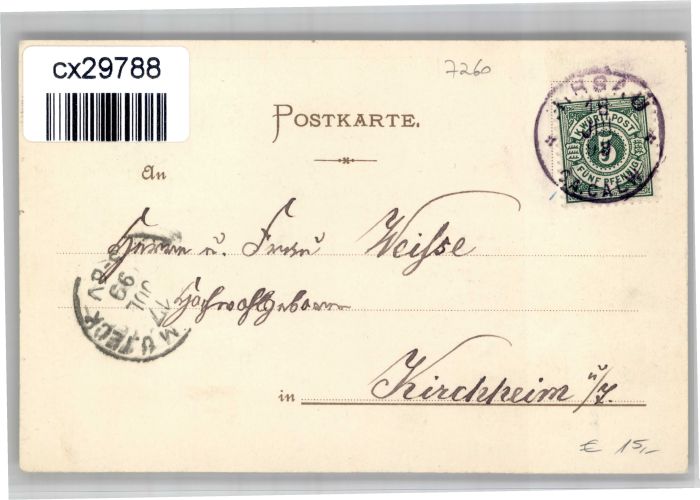 cx29788
7260
POSTKARTE.
K. WÜRTT. POST
5
FÜNF PFENNIG
CALW
An
Herrn u. Frau Weisse
Hochwohlgeboren
JUL
99
U. TECK
in Kirchheim u/T.
€ 15,-